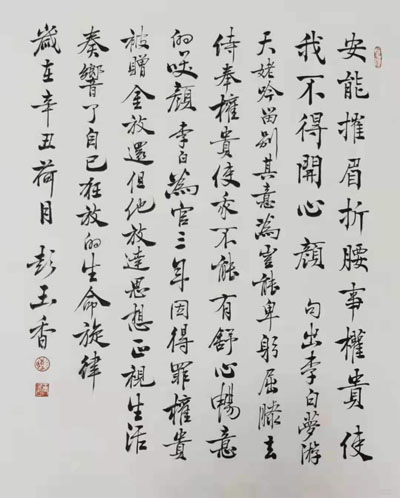 安能摧眉折腰事權貴使
我不得開心顏 句出李白夢游
天姥吟留别其意為豈能卑躬屈膝去
侍奉權貴使我不能有舒心暢意
的笑顏 李白為官三年因得罪權貴
被贈金放還但他放達思想正視生活
奏響了自己狂放的生命旋律
歲在辛丑荷月 彭玉香